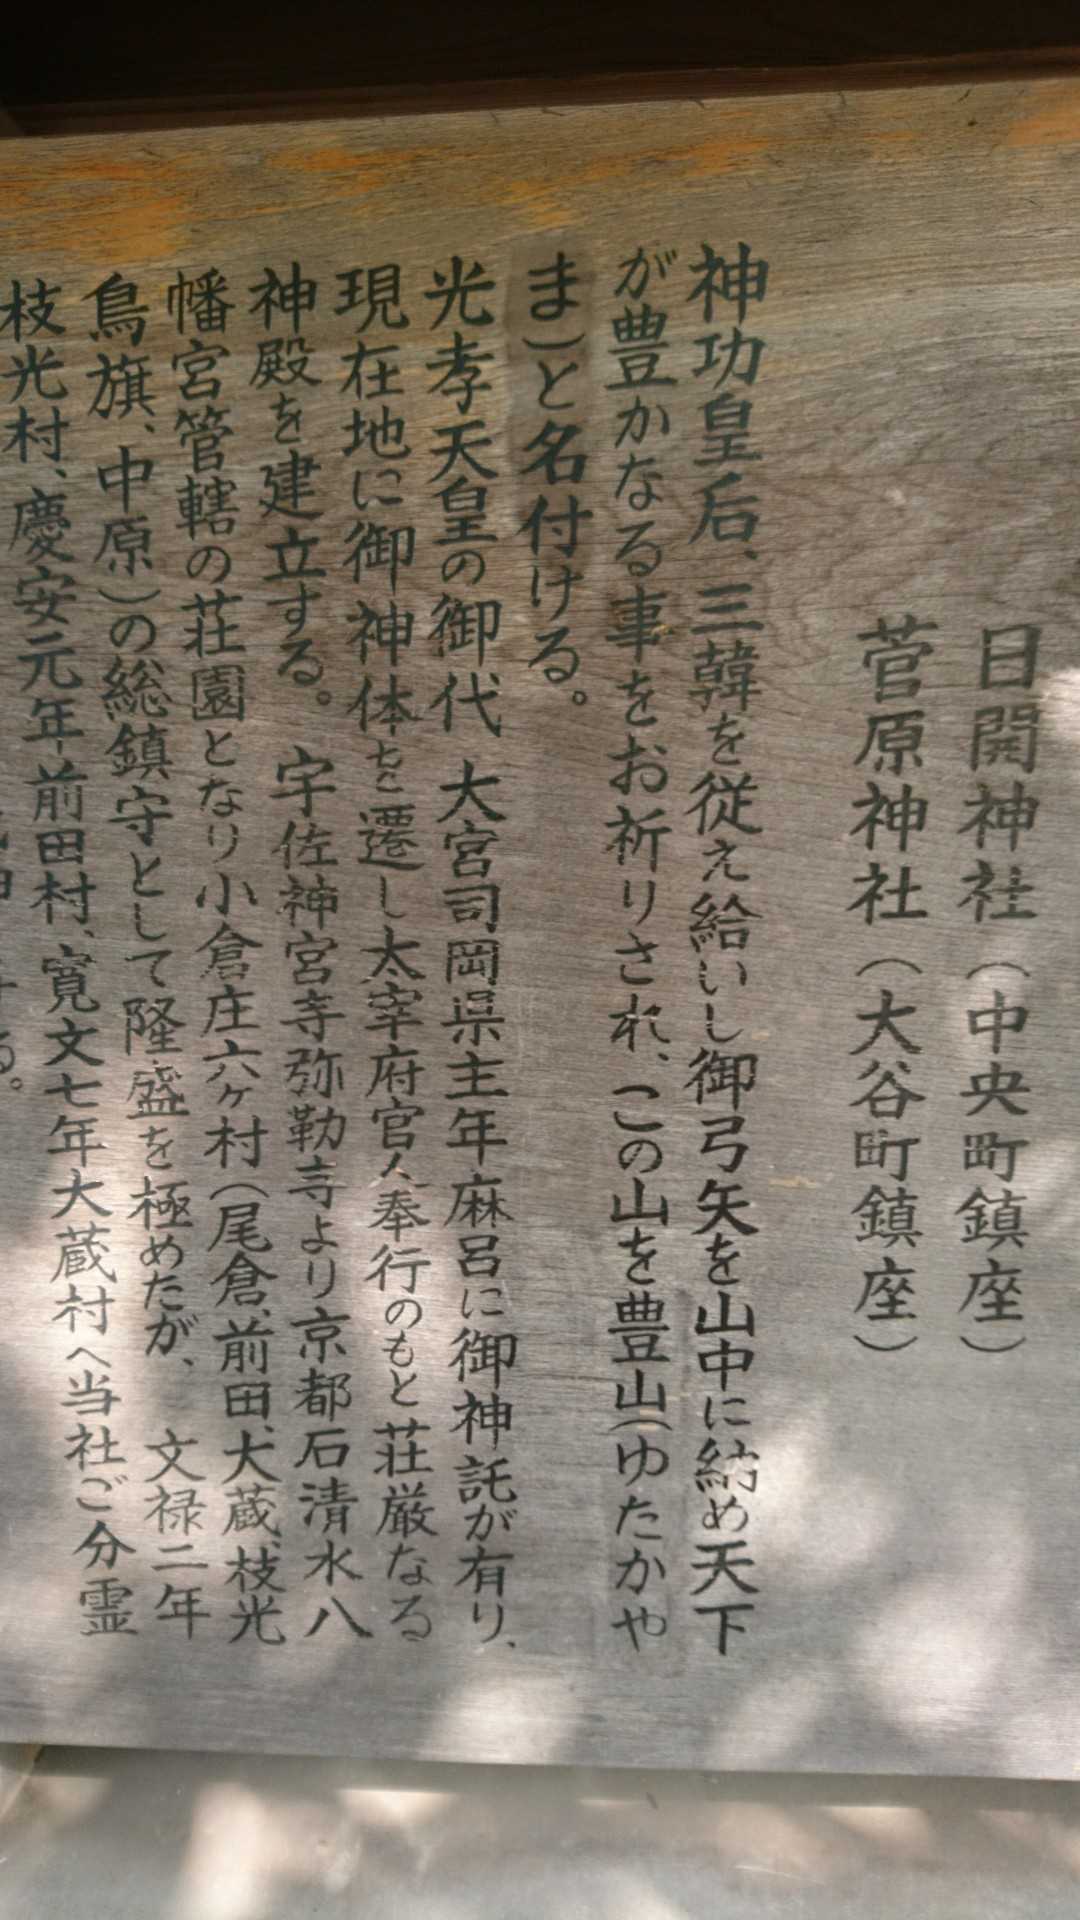 日開神社（中央町鎮座）
菅原神社（大谷町鎮座）
神功皇后、三韓を従え給いし御弓矢を山中に納め天下
が豊かなる事をお祈りされ、この山を豊山（ゆたかや
ま）と名付ける。
光孝天皇の御代 大宮司岡県主年麻呂に御神託が有り、
現在地に御神体を遷し太宰府官人奉行のもと荘厳なる
神殿を建立する。 宇佐神宮寺弥勒寺より京都石清水八
幡宮管轄の荘園となり小倉庄六ヶ村（尾倉、前田、大蔵、枝光
鳥旗、中原）の総鎮守として隆盛を極めたが、 文禄二年
枝光村、慶安元年前田村、寛文七年大蔵村へ当社ご分霊
る。